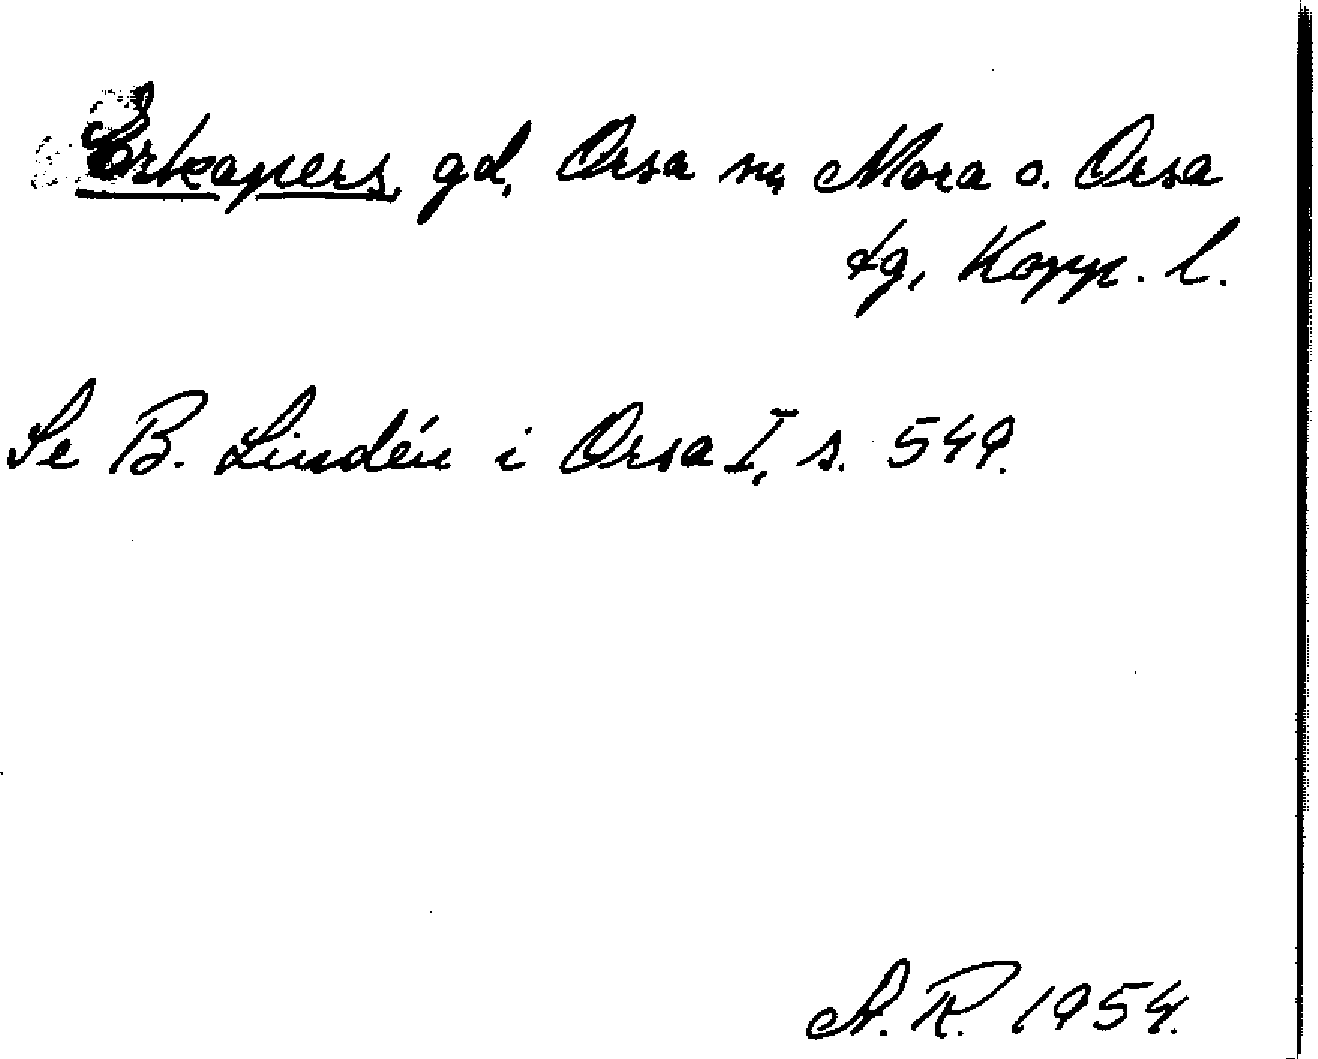 Erkapers, gd, Orsa sn, Mora o. Orsa
tg, Kopp. l.
Se B. Lindén i Orsa I, s. 549.
A. R. 1954.